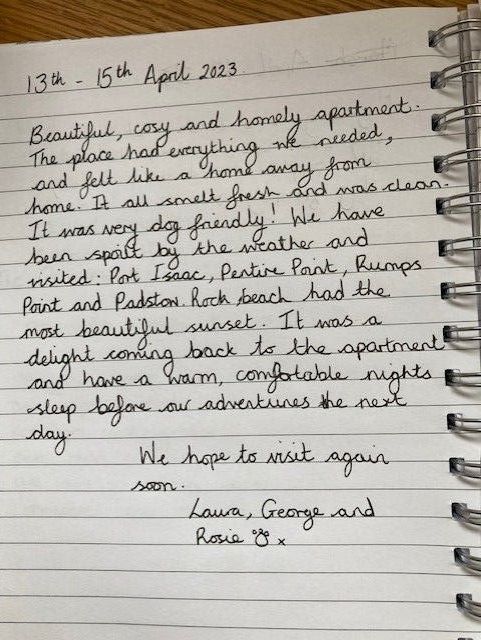 13th - 15th April 2023.
Beautiful, cosy and homely apartment.
The place had everything we needed,
and felt like a home away from
home. It all smelt fresh and was clean.
It was very dog friendly! We have
been spoilt by the weather and
visited: Port Isaac, Pentire Point, Rumps
Point and Padstow. Rock beach had the
most beautiful sunset. It was a
delight coming back to the apartment
and have a warm, comfortable nights
sleep before our adventures the next
day.
We hope to visit again
soon.
Laura, George and
Rosie x